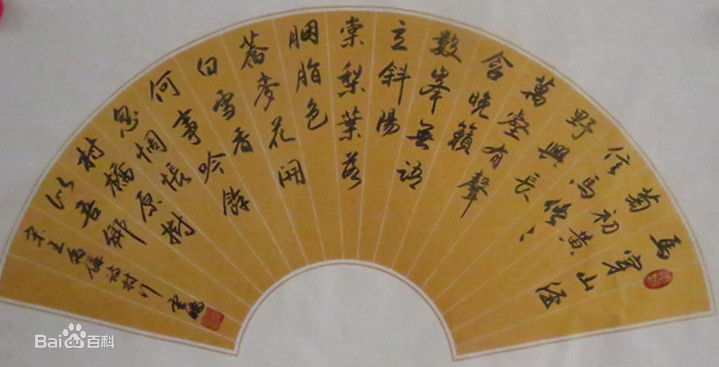 馬穿山徑
菊初黃
信馬悠〻
野興長
萬壑有聲
含晚籟
數峯無語
立斜陽
棠梨葉落
胭脂色
蕎麥花開
白雪香
何事吟餘
忽惆悵
村橋原樹
似吾鄉
宋王禹偁詩村行
Bai百科